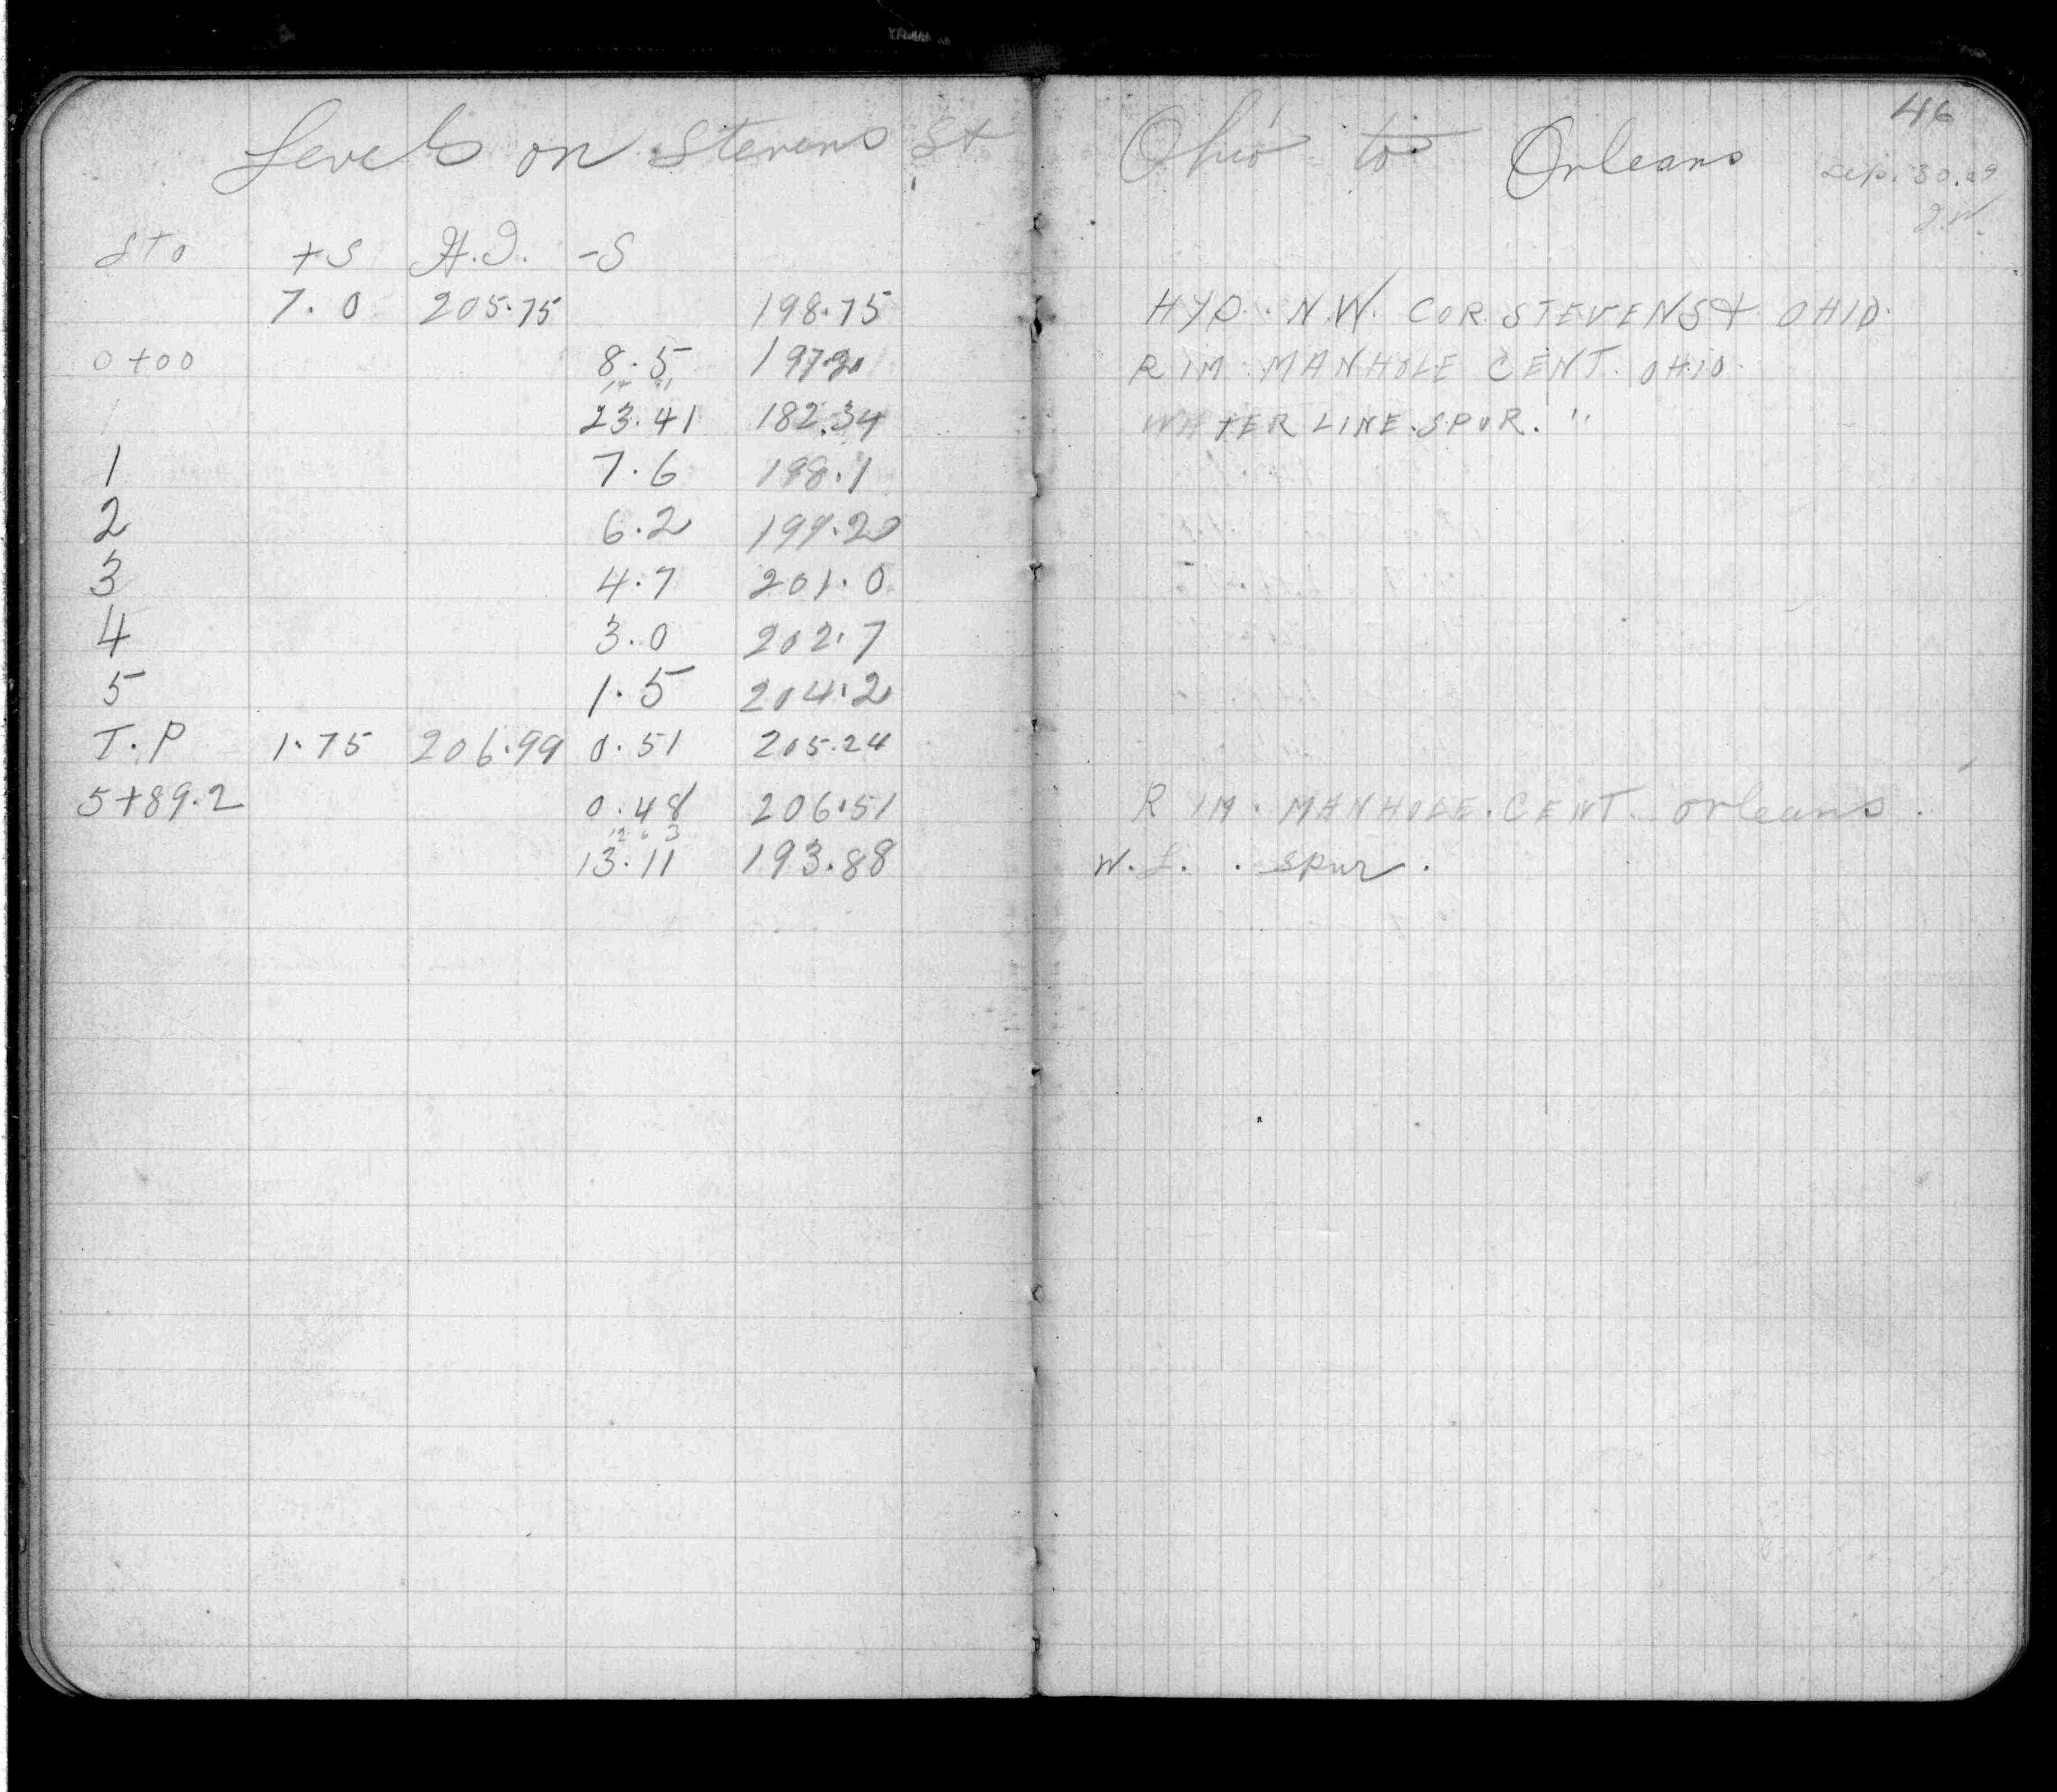 46
Levels on Stevens St Ohio to Orleans
Sep. 30. 29
Sta +S H.I. -S
7.0 205.75 198.75 HYD. N.W. COR. STEVENS & OHIO.
0+00 8.5 197.2 RIM MANHOLE CENT. OHIO.
23.41 182.34 WATER LINE SPUR. "
1 7.6 198.1
2 6.2 199.2
3 4.7 201.0
4 3.0 202.7
5 1.5 204.2
T.P 1.75 206.99 0.51 205.24
5+89.2 0.48 206.51 RIM. MANHOLE. CENT. Orleans.
12 6 3
13.11 193.88 W.L. spur.